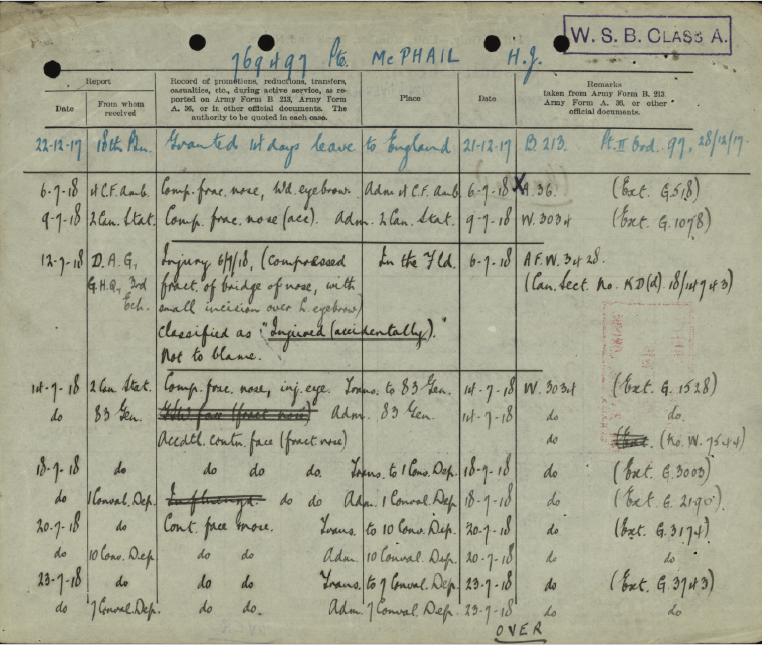 W. S. B. CLASS A.
769497 Pte. McPHAIL H.J.
Report Record of promotions, reductions, transfers, casualties, etc., during active service, as reported on Army Form B 213, Army Form A. 36, or in other official documents. The authority to be quoted in each case. Place Date Remarks taken from Army Form B. 213, Army Form A. 36, or other official documents.
Date From whom received
22-12-17 18th Bn. Granted 14 days leave to England 21-12-17 B. 213. Pt. II Ord. 97, 28/12/17.
6-7-18 4 C.F. Amb. Comp. frac. nose, Wd. eyebrow Adm 4 C.F. Amb 6-7-18 X A. 36. (Ext. G.518)
9-7-18 2 Can. Stat. Comp. frac. nose (acc). Adm. 2 Can. Stat. 9-7-18 W. 3034 (Ext. G. 1078)
12-7-18 D.A.G., Injury 6/7/18, (compressed In the Fld. 6-7-18 A.F.W. 3428.
G.H.Q., 3rd fract. of bridge of nose, with (Can. Sect. No. KD(d). 18/14743)
Ech. small incision over L. eyebrow)
classified as "Injured (accidentally)."
Not to blame.
14-7-18 2 Can. Stat. Comp. frac. nose, inj. eye. Trans. to 83 Gen. 14-7-18 W. 3034 (Ext. G. 1528)
do 83 Gen. face (fract nose) Adm. 83 Gen. 14-7-18 do do.
Accdtl. contn. face (fract nose) do (Ext. (No. W. 7544)
18-7-18 do do do do. Trans. to 1 Conv. Dep. 18-7-18 do (Ext. G. 3003)
do 1 Conval. Dep. Influenza. do do Adm. 1 Conval. Dep. 18-7-18 do (Ext. G. 2190)
20-7-18 do Cont. face nose. Trans. to 10 Conv. Dep. 20-7-18 do (Ext. G. 3174)
do 10 Conv. Dep. do do Adm. 10 Conval. Dep. 20-7-18 do do
23-7-18 do do do Trans. to 7 Conval. Dep. 23-7-18 do (Ext. G. 3743)
do 7 Conval. Dep. do do. Adm. 7 Conval. Dep. 23-7-18 do do
OVER